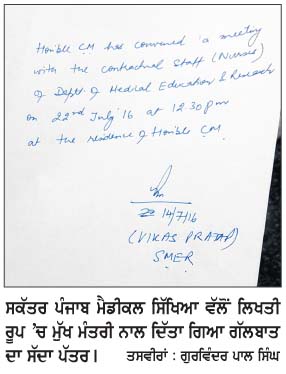 Hon'ble CM has convened a meeting
with the contractual Staff (Nurses)
of Deptt. of Medical Education & Research
on 22nd July'16 at 12.30 pm
at the residence of Hon'ble CM.
14/7/16
(VIKAS PRATAP)
SMER
ਸਕੱਤਰ ਪੰਜਾਬ ਮੈਡੀਕਲ ਸਿੱਖਿਆ ਵੱਲੋਂ ਲਿਖਤੀ
ਰੂਪ 'ਚ ਮੁੱਖ ਮੰਤਰੀ ਨਾਲ ਦਿੱਤਾ ਗਿਆ ਗੱਲਬਾਤ
ਦਾ ਸੱਦਾ ਪੱਤਰ। ਤਸਵੀਰਾਂ : ਗੁਰਵਿੰਦਰ ਪਾਲ ਸਿੰਘ